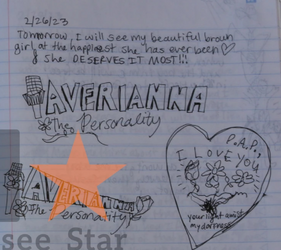 2/26/23
Tomorrow, I will see my beautiful brown
girl at the happiest she has ever been
& she DESERVES IT MOST!!!
AVERIANNA
The Personality
AVERIANNA
The Personality
P.A.P.,
I LOVE YOU
your light amidst
my darkness
see Star